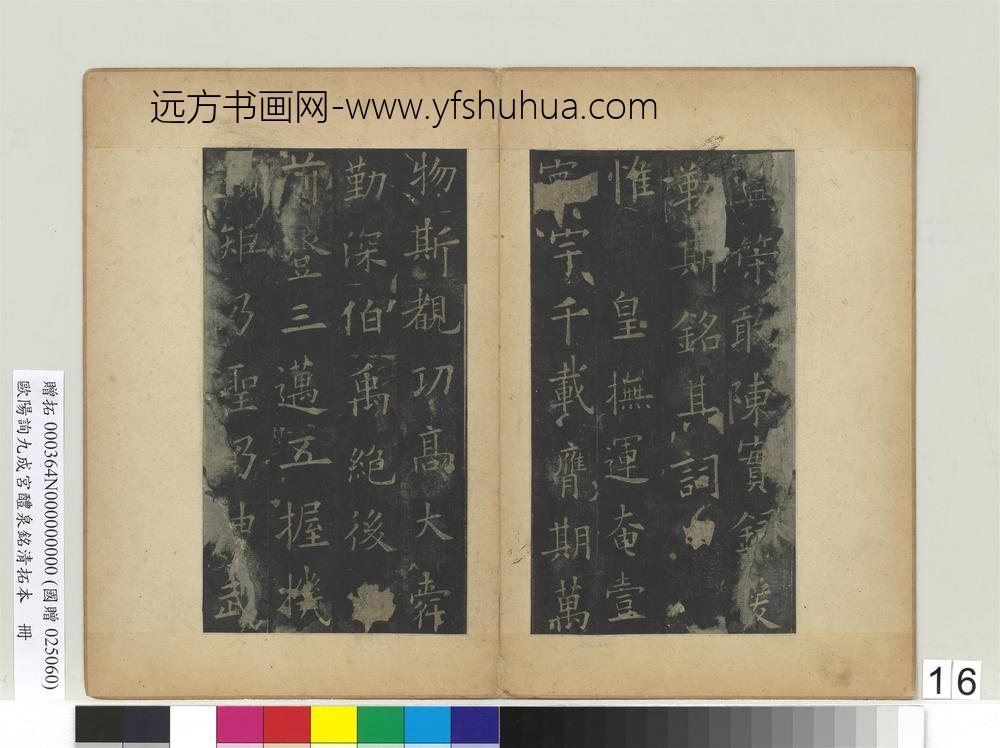 远方书画网-www.yfshuhua.com
策敢陳實錄爰
勒斯銘其詞
惟 皇撫運奄壹
宇千載膺期萬
物斯覩功高大舜
勤深伯禹絕後
前登三邁五握機
矩乃聖乃神武
贈拓 000364N000000000 (國贈 025060)
歐陽詢九成宮醴泉銘清拓本 冊
16